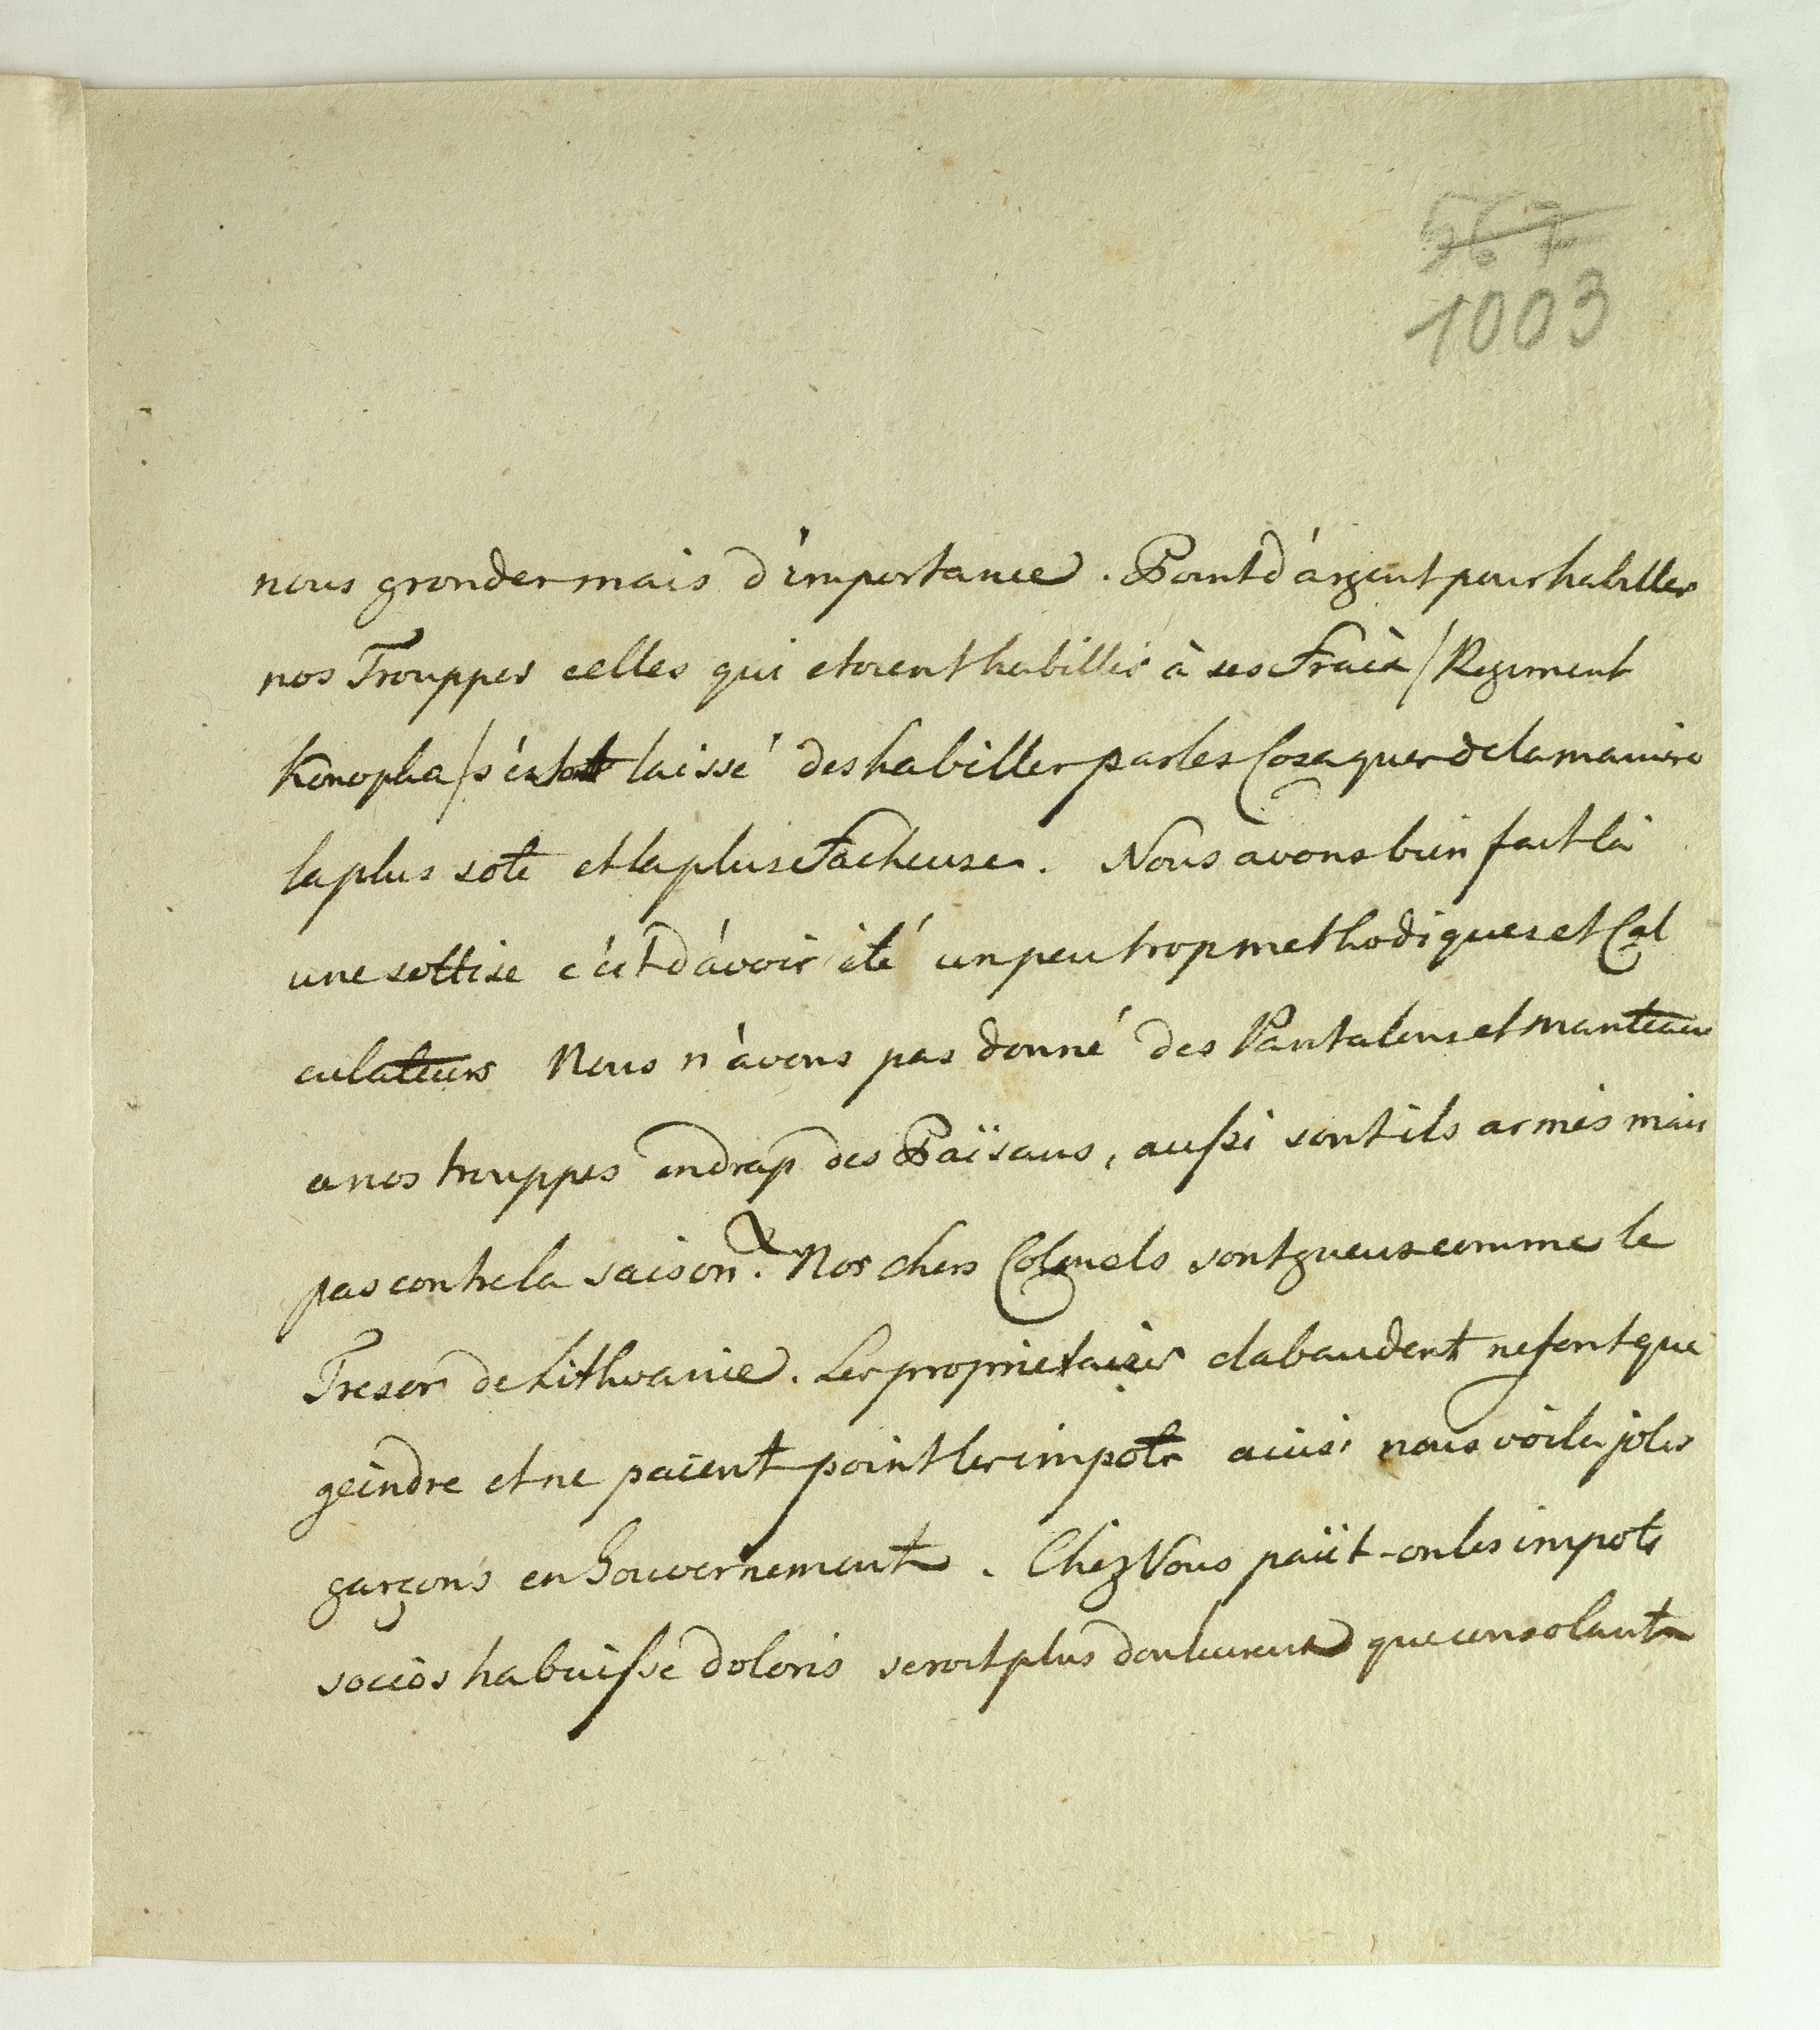 567
1003
nous gronder mais d'importance. Point d'argent pour habiller
nos Trouppes celles qui etoient habilliés à ses Frais / Regiment
Konopka / s'est laissé deshabiller par les Cosaques de la maniere
la plus sote et la plus Facheuse. Nous avons bien fait là
une sottise c'est d'avoir été un peu trop methodiques et Cal
culateurs Nous n'avons pas donné des Pantalons et manteaux
a nos trouppes en drap des Païsans, aussi sont ils armés mais
pas contre la saison. & Nos chers Colonels sont gueux comme le
Tresor de Lithuanie. Les proprietaires clabaudent ne font que
geindre et ne paient point les impots ainsi nous voila jolis
garçons en Gouvernement. Chez Vous païit-on les impots
socios habuisse doloris seroit plus douloureux que consolant